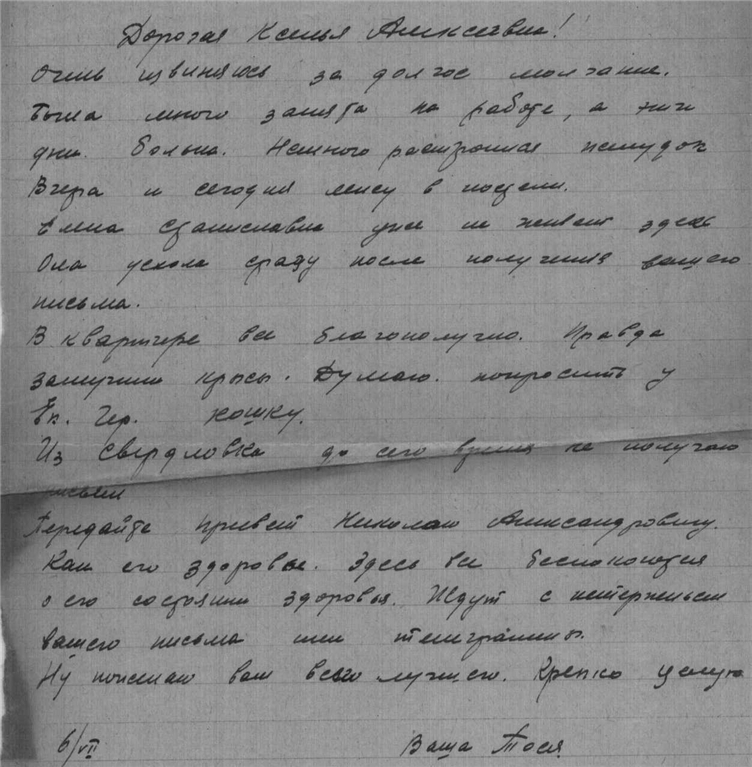 Дорогая Ксенья Алексеевна!
Очень извиняюсь за долгое молчание.
Была много занята на работе, а эти
дни больна. Немного расстроился желудок
Вчера и сегодня лежу в постели.
Елена Станиславна уже не живет здесь
Она уехала сразу после получения вашего
письма.
В квартире все благополучно. Правда
замучили крысы. Думаю попросить у
Ек. Гер. кошку.
Из Свердловка до сего время не получаю
писем
Передайте привет Николаю Александровичу.
Как его здоровье. Здесь все беспокоются
о его состоянии здоровья. Ждут с нетерпеньем
вашего письма или телеграммы.
Ну пожелаю вам всего лучшего. Крепко целую
6/VII Ваша Тося